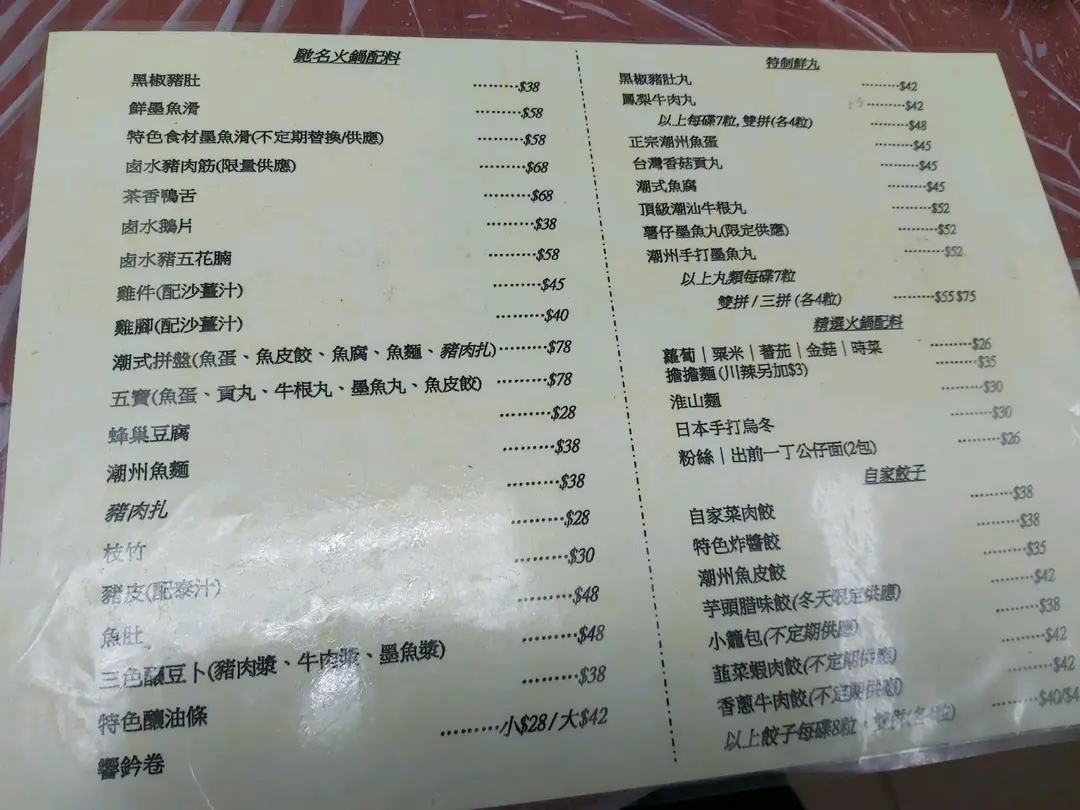 馳名火鍋配料
黑椒豬肚 ………$38
鮮墨魚滑 ………$58
特色食材墨魚滑(不定期替換/供應) ………$58
鹵水豬肉筋(限量供應) ………$68
茶香鴨舌 ………$68
鹵水鵝片 ………$38
鹵水豬五花腩 ………$58
雞件(配沙薑汁) ………$45
雞腳(配沙薑汁) ………$40
潮式拼盤(魚蛋、魚皮餃、魚腐、魚麵、豬肉扎) ………$78
五寶(魚蛋、貢丸、牛根丸、墨魚丸、魚皮餃) ………$78
蜂巢豆腐 ………$28
潮州魚麵 ………$38
豬肉扎 ………$38
枝竹 ………$28
豬皮(配泰汁) ………$30
魚肚 ………$48
三色釀豆卜(豬肉漿、牛肉漿、墨魚漿) ………$48
特色釀油條 ………$38
響鈴卷 ………小$28/大$42
特制鮮丸
黑椒豬肚丸 ………$42
鳳梨牛肉丸 ………$42
以上每碟7粒,雙拼(各4粒) ………$48
正宗潮州魚蛋 ………$45
台灣香菇貢丸 ………$45
潮式魚腐 ………$45
頂級潮汕牛根丸 ………$52
薯仔墨魚丸(限定供應) ………$52
潮州手打墨魚丸 ………$52
以上丸類每碟7粒
雙拼/三拼(各4粒) ………$55 $75
精選火鍋配料
蘿蔔｜粟米｜蕃茄｜金菇｜時菜 ………$26
擔擔麵(川辣另加$3) ………$35
淮山麵 ………$30
日本手打烏冬 ………$30
粉絲｜出前一丁公仔面(2包) ………$26
自家餃子
自家菜肉餃 ………$38
特色炸醬餃 ………$38
潮州魚皮餃 ………$35
芋頭腊味餃(冬天限定供應) ………$42
小籠包(不定期供應) ………$38
韮菜蝦肉餃(不定期供應) ………$42
香蔥牛肉餃(不定期供應) ………$42
以上餃子每碟8粒，雙拼(各4粒) ………$40/$4